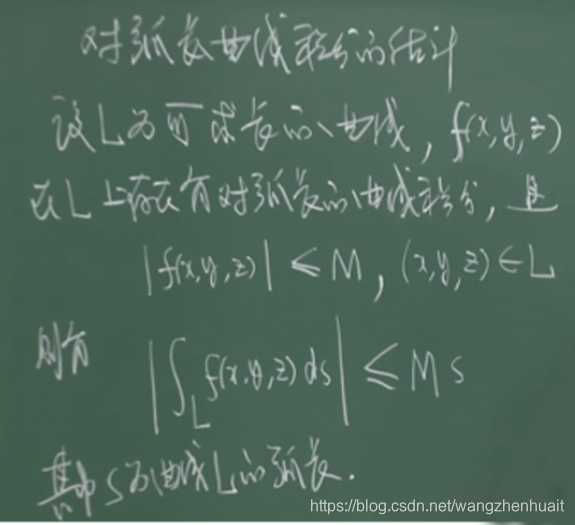 对弧长曲线积分的估计
设L为可求长的曲线, f(x,y,z)
在L上存在有对弧长的曲线积分, 且
|f(x,y,z)| ≤ M, (x,y,z)∈L
则有
|∫_L f(x,y,z)ds| ≤ M s
其中s为曲线L的弧长.
https://blog.csdn.net/wangzhenhuait